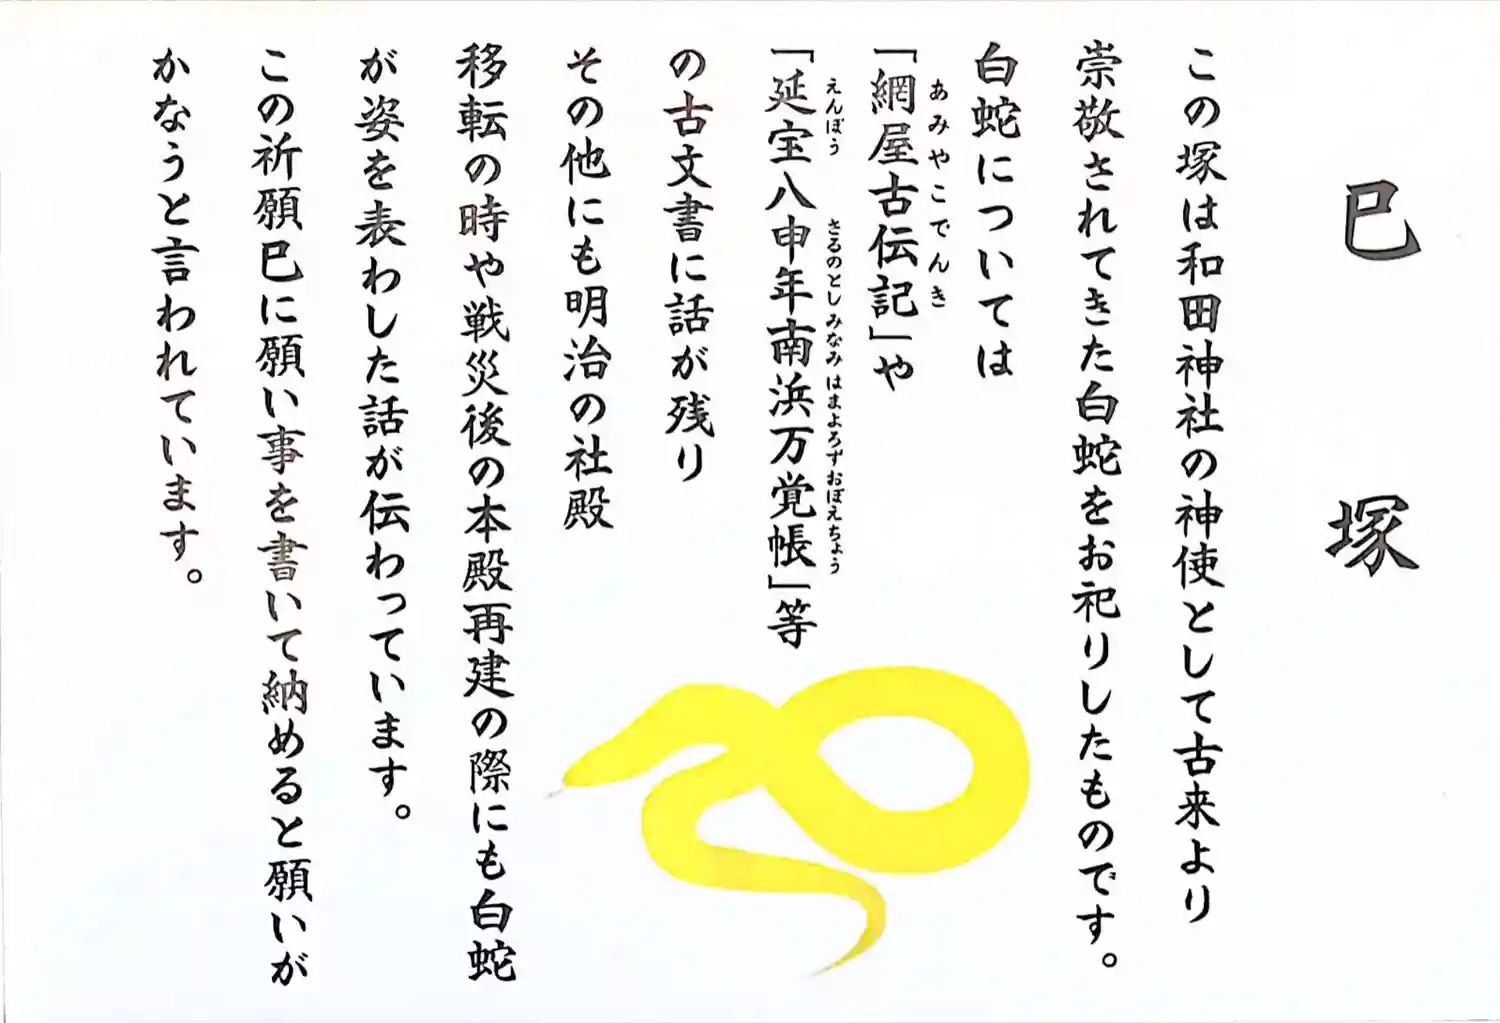 巳塚
この塚は和田神社の神使として古来より
崇敬されてきた白蛇をお祀りしたものです。
白蛇については
「網屋古伝記」や
あみやこでんき
「延宝八申年南浜万覚帳」等
えんぽう さるのとしみなみはまよろずおぼえちょう
の古文書に話が残り
その他にも明治の社殿
移転の時や戦災後の本殿再建の際にも白蛇
が姿を表わした話が伝わっています。
この祈願巳に願い事を書いて納めると願いが
かなうと言われています。